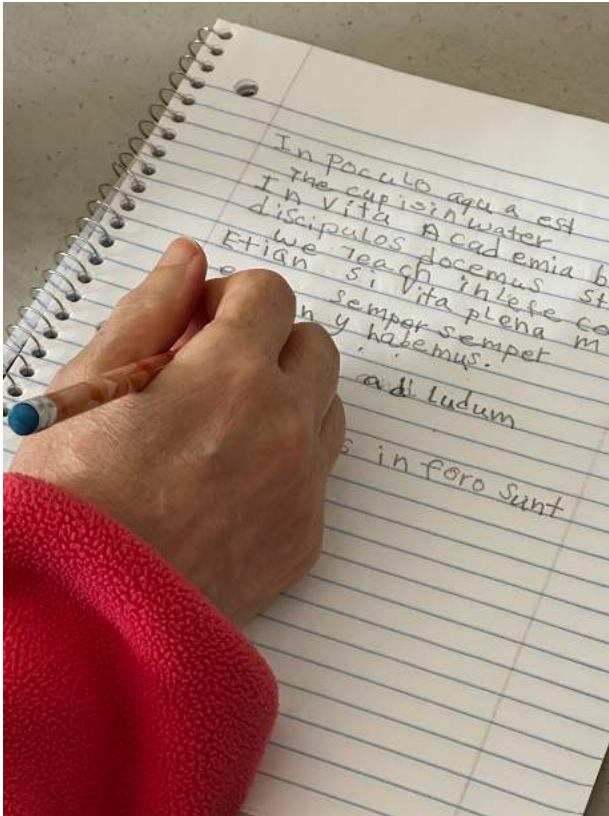 In poculo aqua est
The cup isin water
In vita Academia b
discipulos docemus st
we Teach
Etian si vita plena m
semper semper
n y habemus.
ad ludum
s in foro sunt